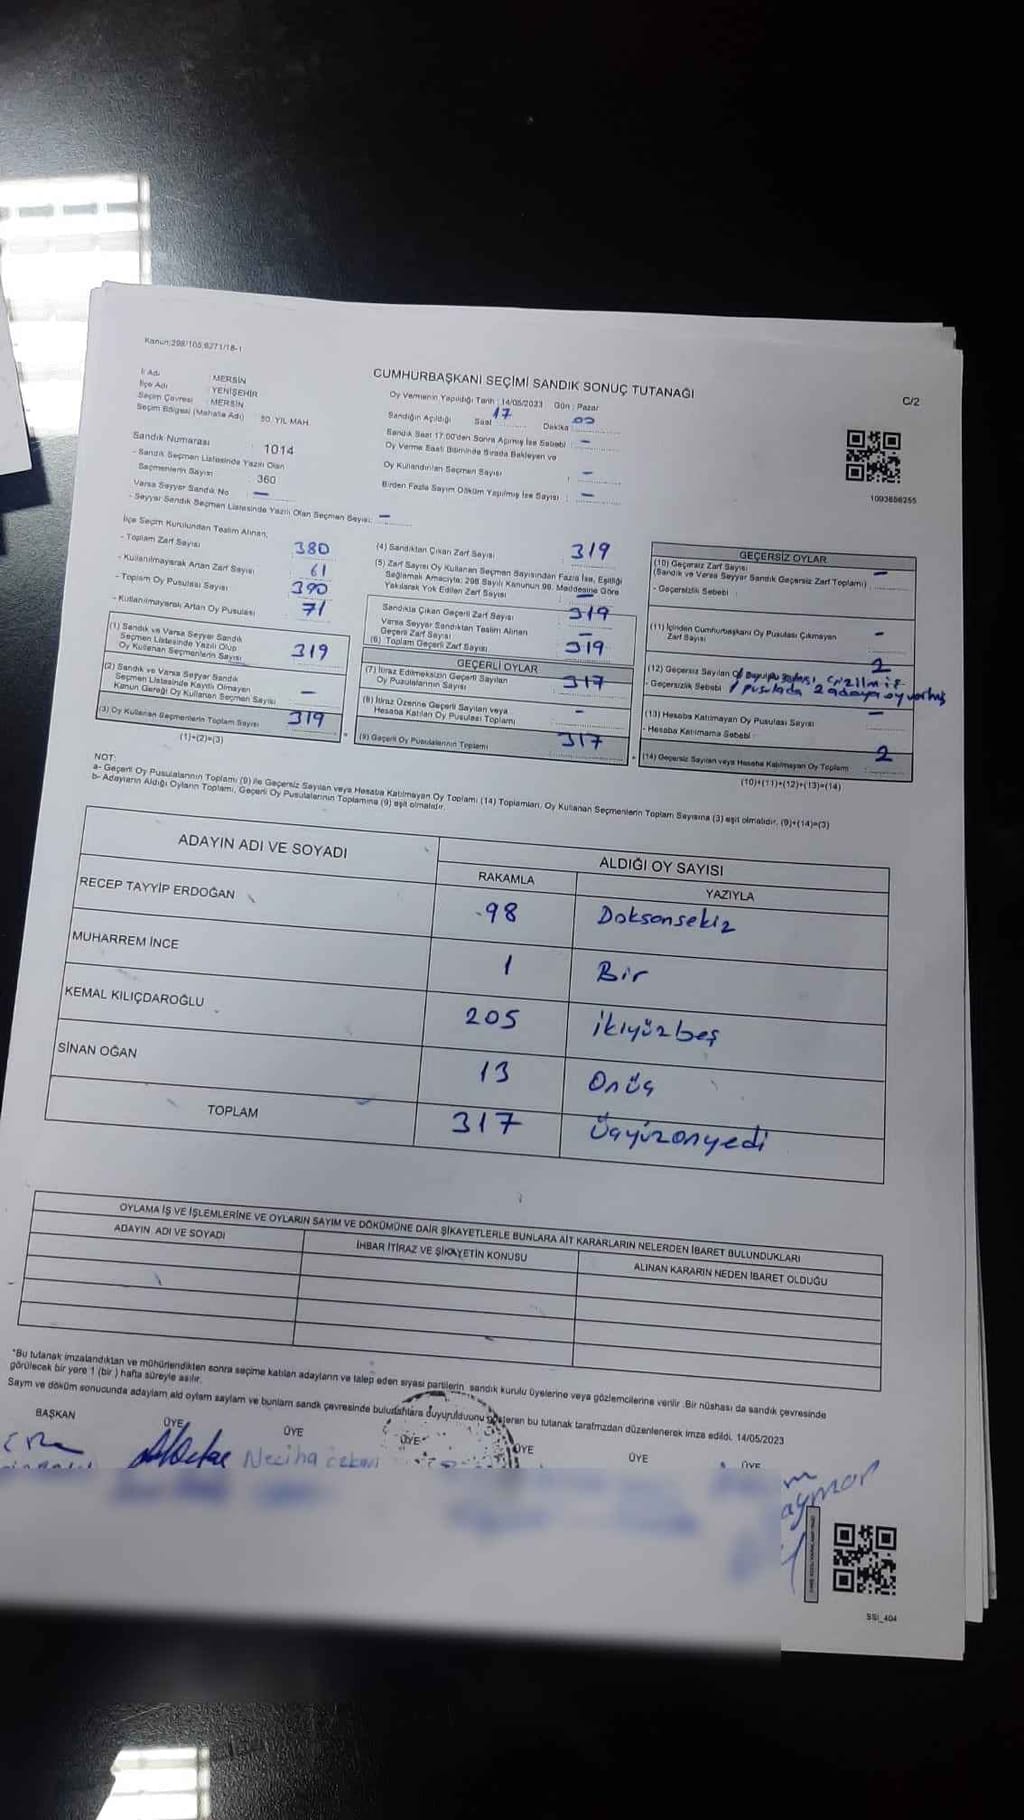 Kanun:298/105,6271/18-1
CUMHURBAŞKANI SEÇİMİ SANDIK SONUÇ TUTANAĞI
C/2
İl Adı MERSİN
İlçe Adı YENİŞEHİR
Seçim Çevresi MERSİN
Seçim Bölgesi (Mahalle Adı) 50. YIL MAH
Oy Vermenin Yapıldığı Tarih : 14/05/2023 Gün : Pazar
Sandığın Açıldığı Saat 17 Dakika 00
Sandık Saat 17:00'den Sonra Açılmış İse Sebebi : -
Oy Verme Saati Bitiminde Sırada Bekleyen ve
Oy Kullandırılan Seçmen Sayısı : -
Birden Fazla Sayım Döküm Yapılmış İse Sayısı : -
1093656255
Sandık Numarası : 1014
- Sandık Seçmen Listesinde Yazılı Olan
Seçmenlerin Sayısı : 360
Varsa Seyyar Sandık No -
- Seyyar Sandık Seçmen Listesinde Yazılı Olan Seçmen Sayısı: -
İlçe Seçim Kurulundan Teslim Alınan,
- Toplam Zarf Sayısı 380
- Kullanılmayarak Artan Zarf Sayısı 61
- Toplam Oy Pusulası Sayısı 390
- Kullanılmayarak Artan Oy Pusulası 71
(1) Sandık ve Varsa Seyyar Sandık
Seçmen Listesinde Yazılı Olup
Oy Kullanan Seçmenlerin Sayısı 319
(2) Sandık ve Varsa Seyyar Sandık
Seçmen Listesinde Kayıtlı Olmayan
Kanun Gereği Oy Kullanan Seçmen Sayısı -
(3) Oy Kullanan Seçmenlerin Toplam Sayısı 319
(1)+(2)=(3)
(4) Sandıktan Çıkan Zarf Sayısı 319
(5) Zarf Sayısı Oy Kullanan Seçmen Sayısından Fazla İse, Eşitliği
Sağlamak Amacıyla; 298 Sayılı Kanunun 98. Maddesine Göre
Yakılarak Yok Edilen Zarf Sayısı -
Sandıkta Çıkan Geçerli Zarf Sayısı 319
Varsa Seyyar Sandıktan Teslim Alınan
Geçerli Zarf Sayısı -
(6) Toplam Geçerli Zarf Sayısı 319
GEÇERLİ OYLAR
(7) İtiraz Edilmeksizin Geçerli Sayılan
Oy Puzulalarının Sayısı 317
(8) İtiraz Üzerine Geçerli Sayılan veya
Hesaba Katılan Oy Pusulası Toplamı -
(9) Geçerli Oy Pusulalarının Toplamı 317
GEÇERSİZ OYLAR
(10) Geçersiz Zarf Sayısı
(Sandık ve Varsa Seyyar Sandık Geçersiz Zarf Toplamı) -
- Geçersizlik Sebebi :
(11) İçinden Cumhurbaşkanı Oy Pusulası Çıkmayan
Zarf Sayısı -
(12) Geçersiz Sayılan 2
çizilmiş
- Geçersizlik Sebebi 1 pusulada 2 adaya oy vermiş
(13) Hesaba Katılmayan Oy Pusulası Sayısı -
- Hesaba Katılmama Sebebi
(14) Geçersiz Sayılan veya Hesaba Katılmayan Oy Toplamı 2
(10)+(11)+(12)+(13)=(14)
NOT:
a- Geçerli Oy Pusulalarının Toplamı (9) ile Geçersiz Sayılan veya Hesaba Katılmayan Oy Toplamı (14) Toplamları, Oy Kullanan Seçmenlerin Toplam Sayısına (3) eşit olmalıdır. (9)+(14)=(3)
b- Adayların Aldığı Oyların Toplamı, Geçerli Oy Pusulalarının Toplamına (9) eşit olmalıdır.
ADAYIN ADI VE SOYADI ALDIĞI OY SAYISI
RAKAMLA YAZIYLA
RECEP TAYYİP ERDOĞAN 98 Doksansekiz
MUHARREM İNCE 1 Bir
KEMAL KILIÇDAROĞLU 205 ikiyüzbeş
SİNAN OĞAN 13 Onüç
TOPLAM 317 Üçyüzonyedi
OYLAMA İŞ VE İŞLEMLERİNE VE OYLARIN SAYIM VE DÖKÜMÜNE DAİR ŞİKAYETLERLE BUNLARA AİT KARARLARIN NELERDEN İBARET BULUNDUKLARI
ADAYIN ADI VE SOYADI İHBAR İTİRAZ VE ŞİKAYETİN KONUSU ALINAN KARARIN NEDEN İBARET OLDUĞU
*Bu tutanak imzalandıktan ve mühürlendikten sonra seçime katılan adayların ve talep eden siyasi partilerin sandık kurulu üyelerine veya gözlemcilerine verilir .Bir nüshası da sandık çevresinde
görülecek bir yere 1 (bir ) hafta süreyle asılır.
Sayım ve döküm sonucunda adayların aldığı oyların sayıları ve bunların sandık çevresinde bulunanlara duyurulduğunu gösteren bu tutanak tarafımızdan düzenlenerek imza edildi. 14/05/2023
BAŞKAN ÜYE ÜYE ÜYE ÜYE ÜYE ÜYE
Neciha
SSI_404